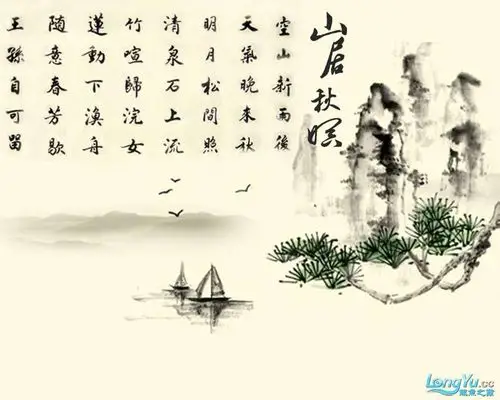 山居秋暝
空山新雨後
天氣晚來秋
明月松間照
清泉石上流
竹喧歸浣女
蓮動下漁舟
隨意春芳歇
王孫自可留
LongYu.cc
龍魚之巔